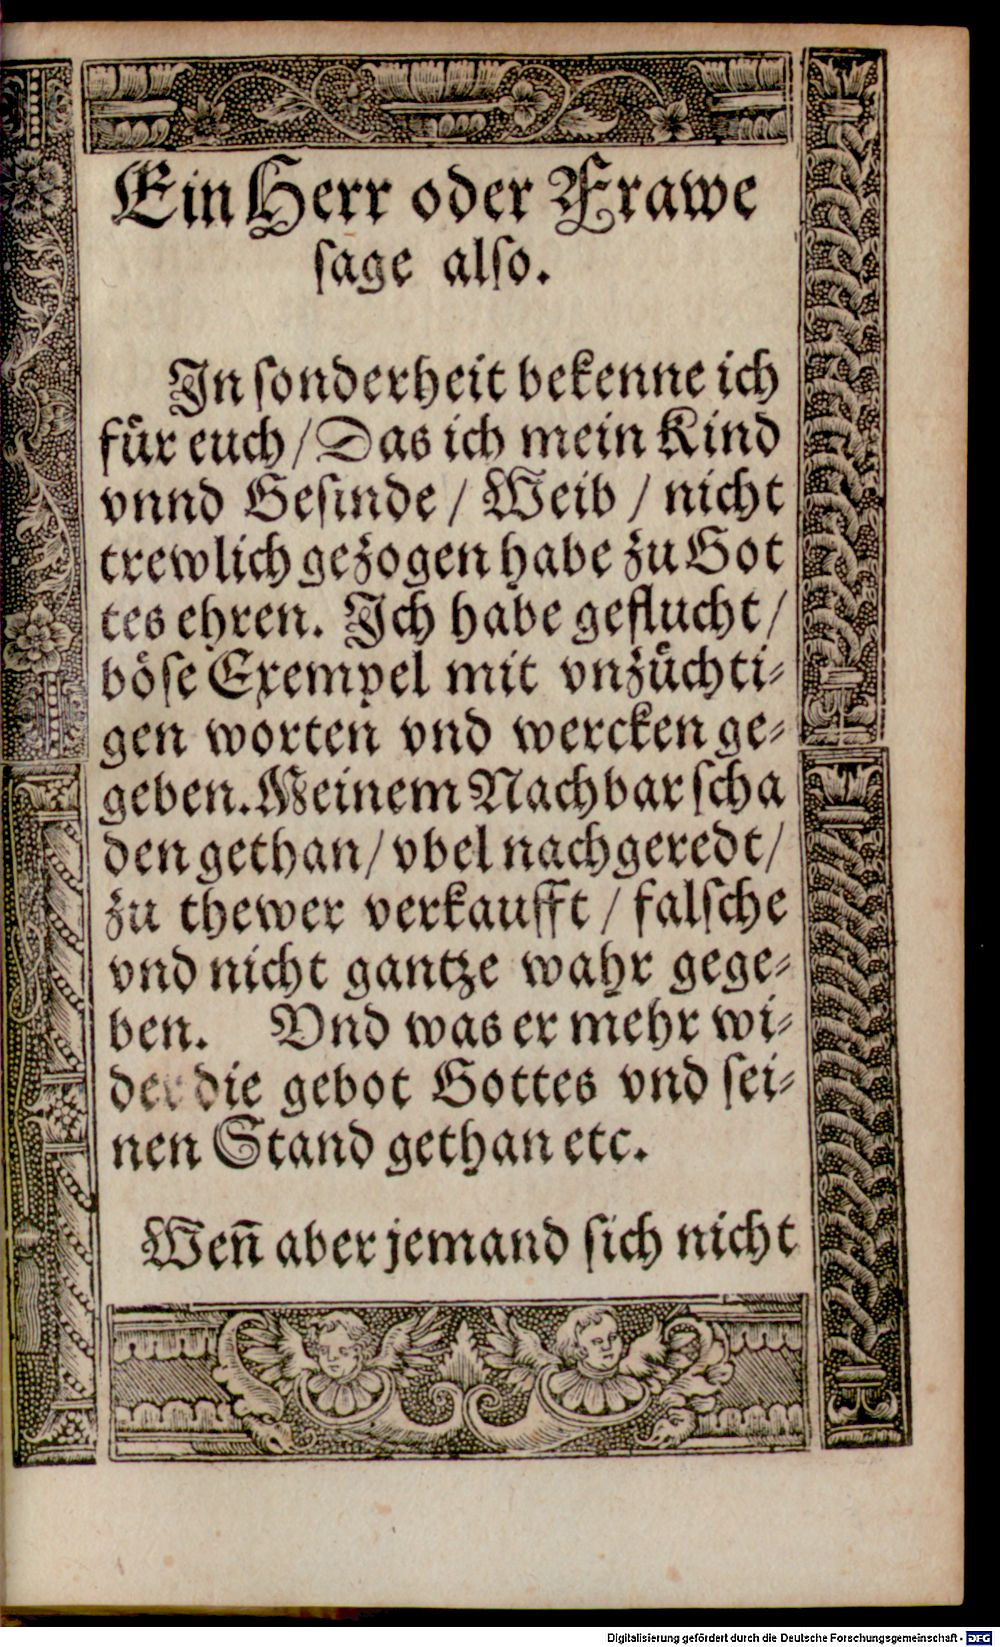 Ein Herr oder Frawe
ſage alſo.
In ſonderheit bekenne ich
für euch / Das ich mein Kind
vnnd Geſinde / Weib / nicht
trewlich gezogen habe zu Got
tes ehren. Ich habe geflucht /
böſe Exempel mit vnzüchti-
gen worten vnd wercken ge-
geben. Meinem Nachbar ſcha
den gethan / vbel nachgeredt /
zu thewer verkaufft / falſche
vnd nicht gantze wahr gege-
ben. Vnd was er mehr wi-
der die gebot Gottes vnd ſei-
nen Stand gethan etc.
Weñ aber jemand ſich nicht
Digitalisierung gefördert durch die Deutsche Forschungsgemeinschaft - DFG